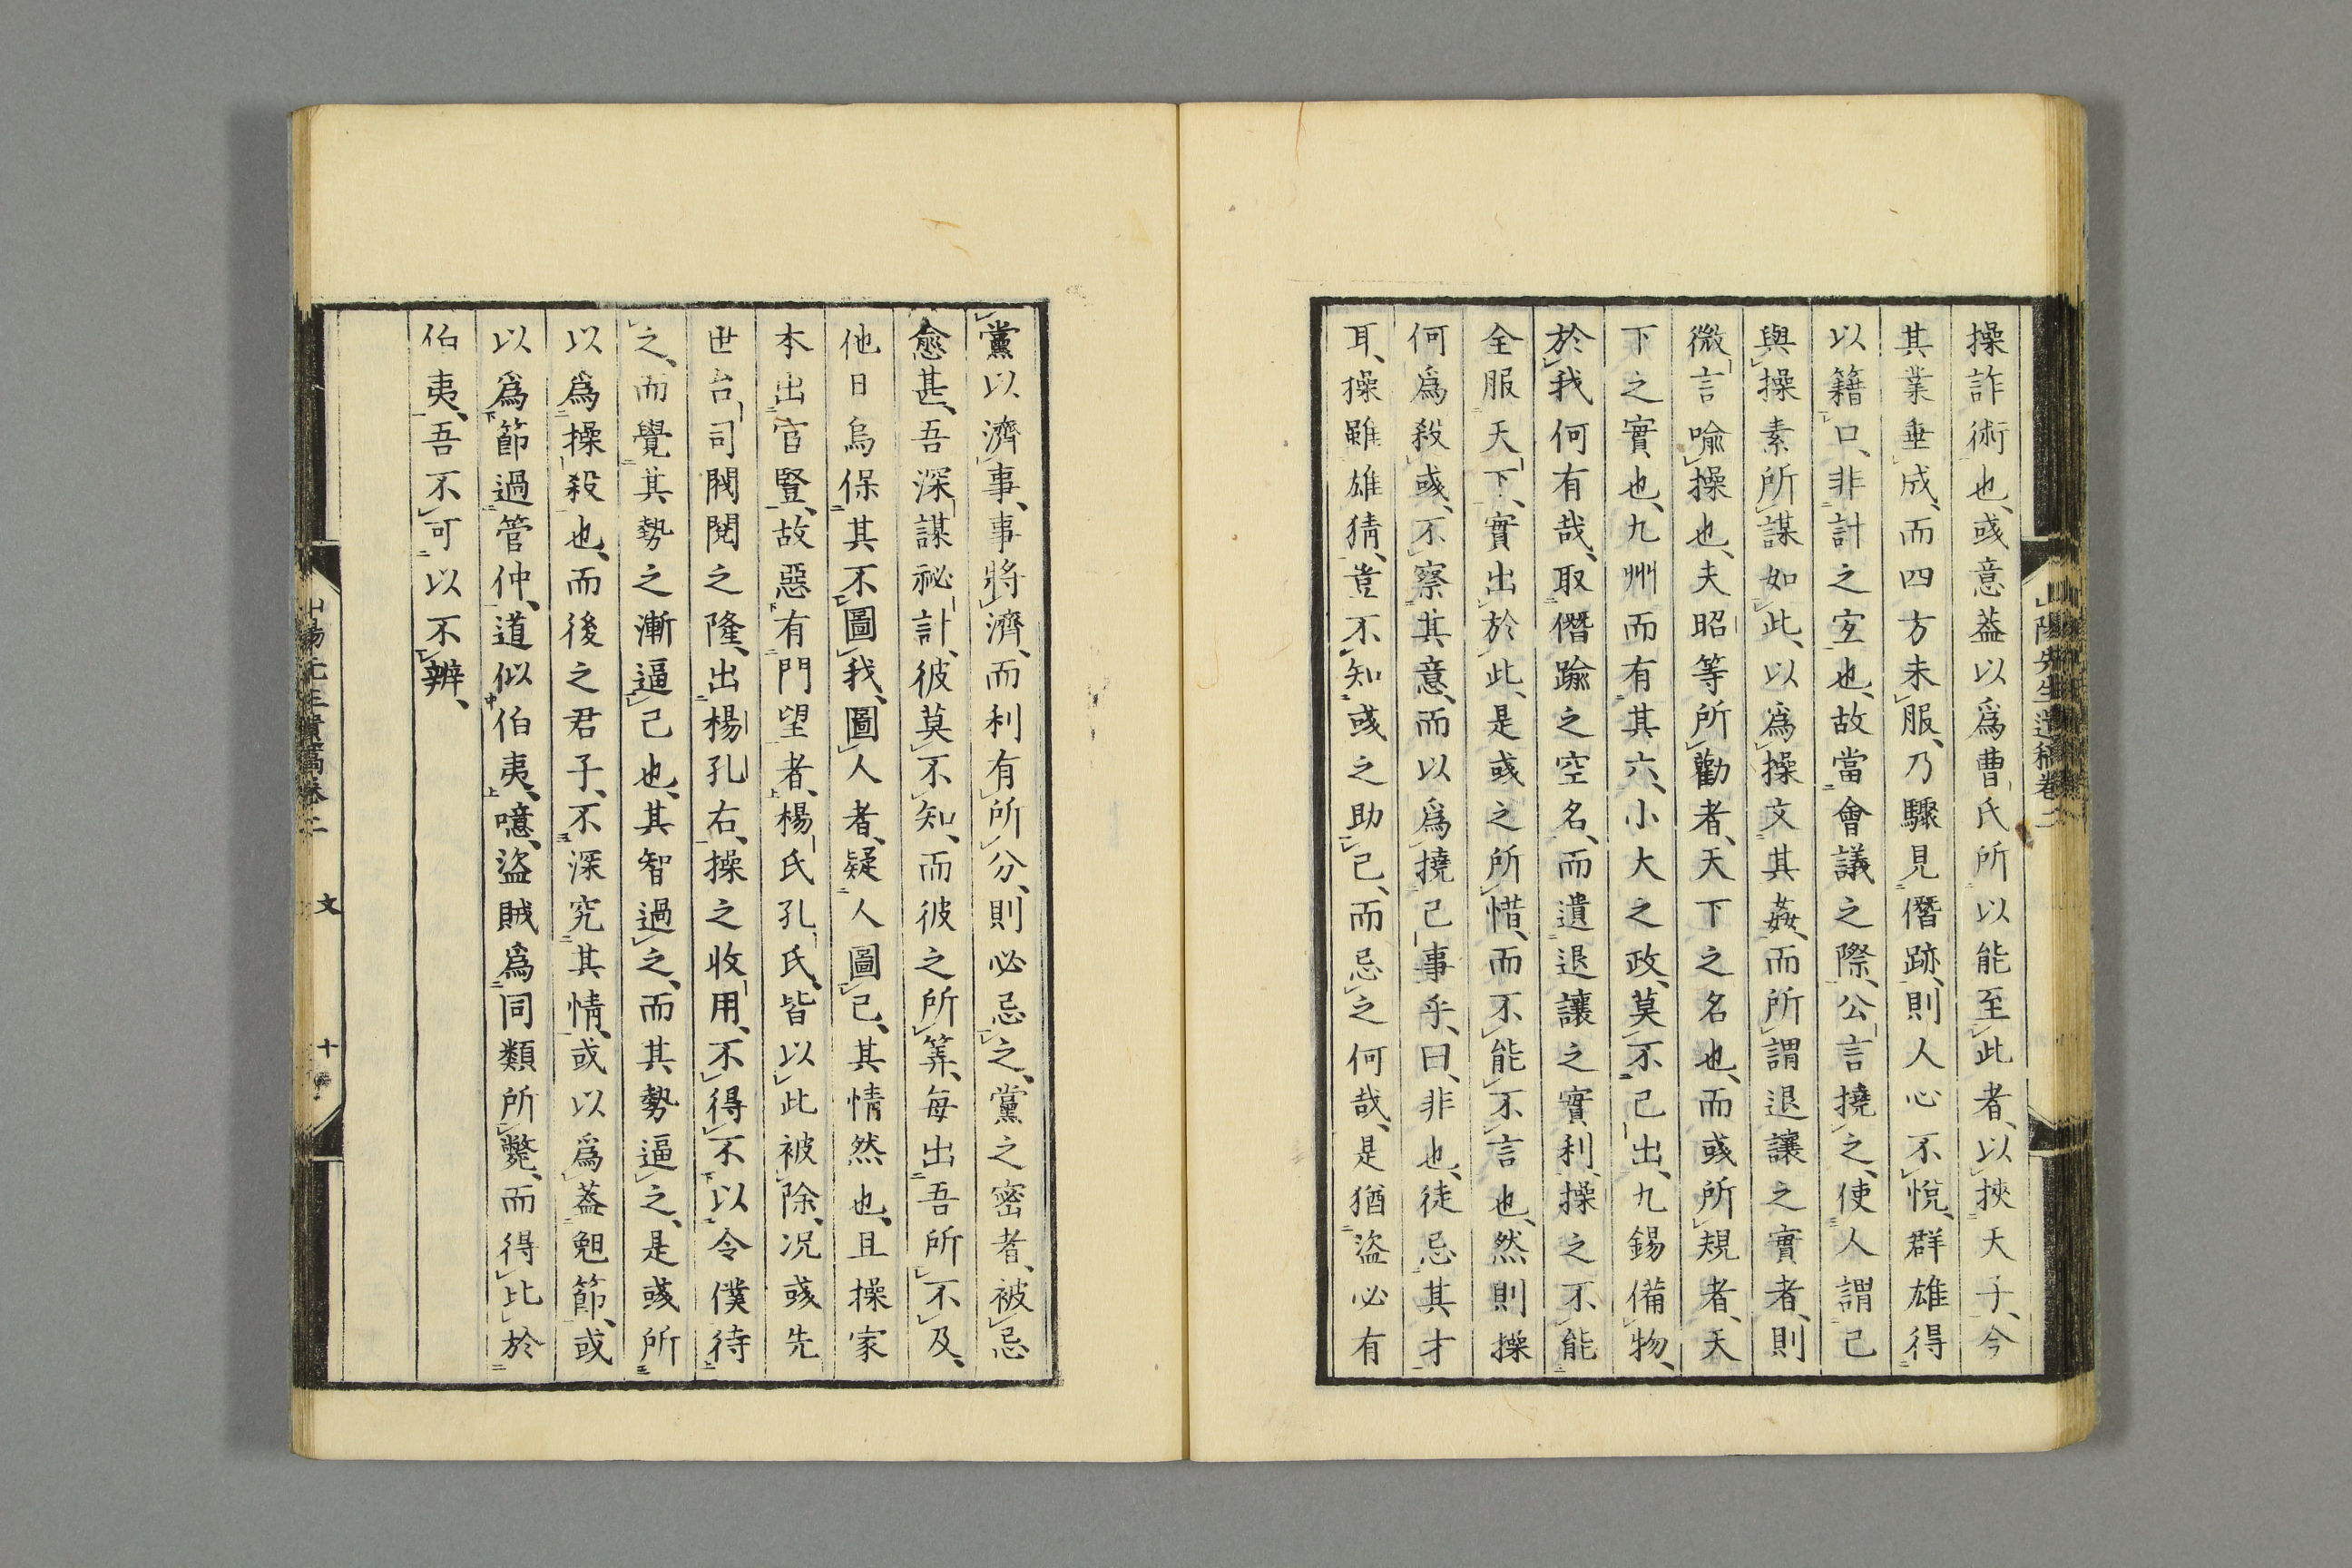 操詐術也、彧意葢以爲曹氏所以能至此者、以挾天子、今
其業垂成、而四方未服、乃驟見僭跡、則人心不悅、群雄得
以籍口、非計之宐也、故當會議之際、公言撓之、使人謂己
與操素所謀如此、以爲操文其姦、而所謂退讓之實者、則
微言喩操也、夫昭等所勸者、天下之名也、而彧所規者、天
下之實也、九州而有其六、小大之政、莫不己出、九錫備物、
於我何有哉、取僭踰之空名、而遺退讓之實利、操之不能
全服天下、實出於此、是彧之所惜、而不能不言也、然則操
何爲殺彧、不察其意、而以爲撓己事乎、曰、非也、徒忌其才
耳、操雖雄猜、豈不知彧之助己、而忌之何哉、是猶盜必有
黨以濟事、事將濟、而利有所分、則必忌之、黨之密者、被忌
愈甚、吾深謀祕計、彼莫不知、而彼之所筭、每出吾所不及、
他日烏保其不圖我、圖人者、疑人圖己、其情然也、且操家
本出官豎、故惡有門望者、楊氏孔氏、皆以此被除、况彧先
世台司閥閱之隆、出楊孔右、操之收用、不得不以令僕待
之、而覺其勢之漸逼己也、其智過之、而其勢逼之、是彧所
以爲操殺也、而後之君子、不深究其情、或以爲葢䫉節、或
以爲節過管仲、道似伯夷、噫、盜賊爲同類所斃、而得比於
伯夷、吾不可以不辨、
山陽先生遺稿卷二
山陽先生遺稿卷二 文 十